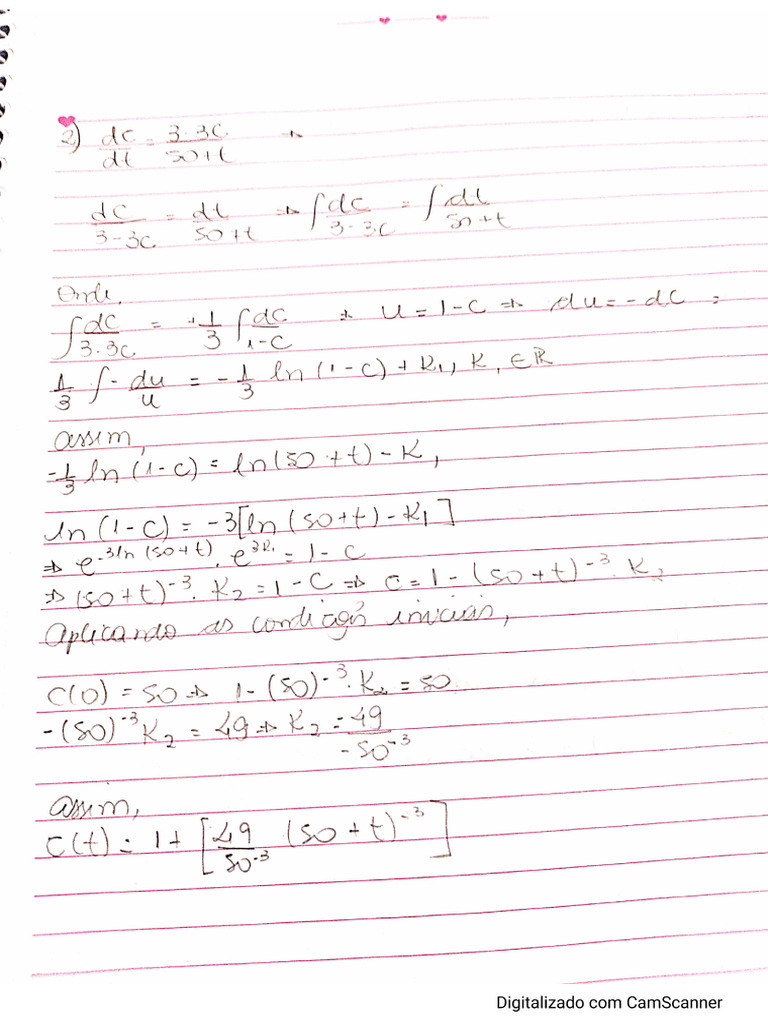 2) dc/dt = 3-3c/50+t →
dc/3-3c = dt/50+t ⇒ ∫dc/3-3c = ∫dt/50+t
Onde,
∫dc/3-3c = +1/3 ∫dc/1-c ⇒ u = 1-c ⇒ du = -dc =
1/3 ∫-du/u = -1/3 ln(1-c) + K₁, K, ∈ ℝ
assim,
-1/3 ln(1-c) = ln(50+t) - K,
ln(1-c) = -3[ln(50+t) - K₁]
⇒ e^-3ln(50+t) . e^3K₁ = 1-c
⇒ (50+t)^-3 . K₂ = 1-c ⇒ c = 1-(50+t)^-3 . K₂
Aplicando as condições iniciais,
C(0) = 50 ⇒ 1-(50)^-3 . K₂ = 50
-(50)^-3 K₂ = 49 ⇒ K₂ = 49/-50^-3
assim,
C(t) = 1+ [49/50^-3 (50+t)^-3]
Digitalizado com CamScanner